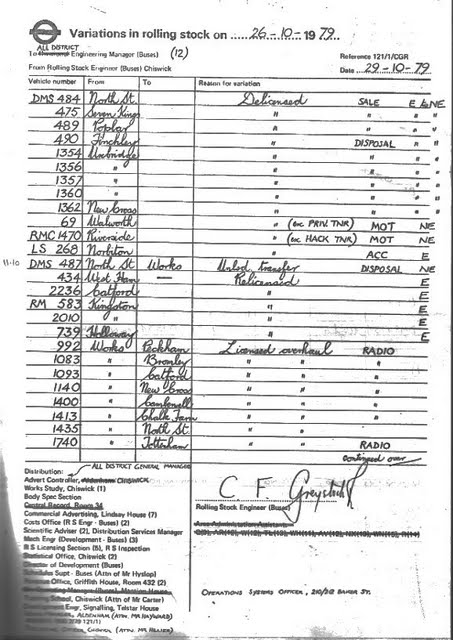 Variations in rolling stock on 26-10-1979.
ALL DISTRICT
To Engineering Manager (Buses) (12)
Reference 121/1/CGR
From Rolling Stock Engineer (Buses) Chiswick
Date 29-10-79
Vehicle number From To Reason for variation
DMS 484 North St. Delicensed SALE E & NE
475 Seven Kings " " " "
489 Poplar " " " "
490 Finchley " DISPOSAL " "
1354 Uxbridge " " " "
1356 " " " " "
1357 " " " " "
1360 " " " " "
1362 New Cross " " " "
69 Walworth " (exc PRIV. TNR) MOT NE
RMC 1470 Riverside " (exc HACK TNR) MOT NE
LS 268 Norbiton " ACC E
11-10 DMS 487 North St Works Unlsd. transfer DISPOSAL NE
434 West Ham — Relicensed E
2236 Catford " E
RM 583 Kingston " E
2010 " " E
739 Holloway " E
992 Works Peckham Licensed overhaul RADIO
1083 " Bromley " " "
1093 " Catford " " "
1140 " New Cross " " "
1400 " Camberwell " " "
1413 " Chalk Farm " " "
1435 " North St. " "
1740 " Tottenham " " RADIO
continued over
Distribution: ALL DISTRICT GENERAL MANAGER
Advert Controller, CHISWICK
Works Study, Chiswick (1)
Body Spec Section
Central Record, Room 34
Commercial Advertising, Lindsay House (7)
Costs Office (R S Engr - Buses) (2)
Scientific Adviser (2), Distribution Services Manager
Mech Engr (Development - Buses) (3)
R S Licensing Section (5), R S Inspection
Statistical Office, Chiswick (2)
Director of Development (Buses)
Schedules Supt - Buses (Attn of Mr Hyslop)
Office, Griffith House, Room 432 (2)
School, Chiswick (Attn of Mr Carter)
Engr, Signalling, Telstar House
ALDENHAM (ATTN. MR HAYWARD)
C F Greystock
Rolling Stock Engineer (Buses)
OPERATIONS SYSTEMS OFFICER, 210/212 BAKER ST.